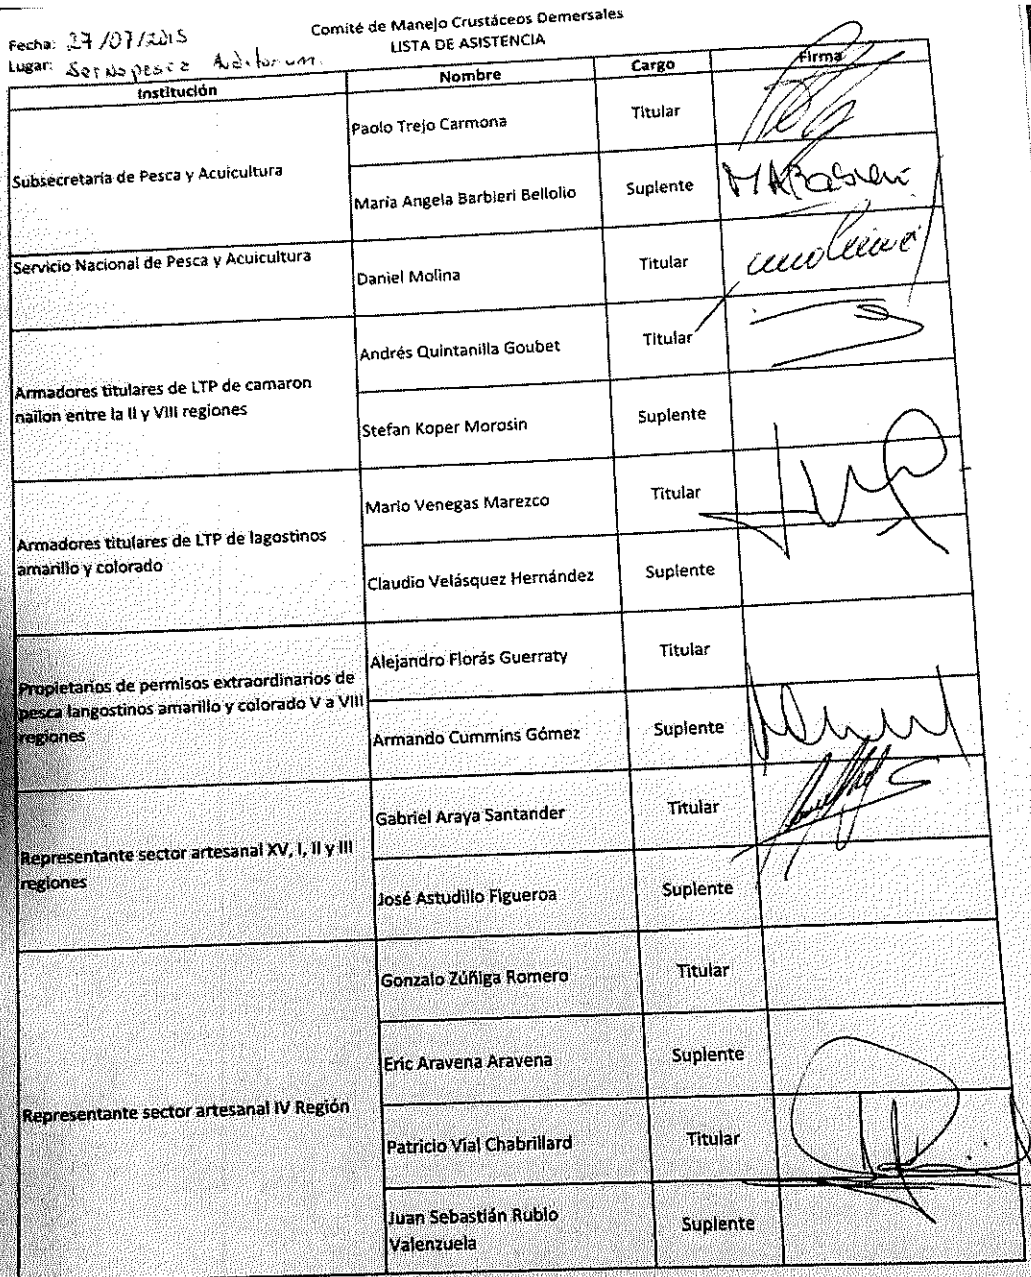 Comité de Manejo Crustáceos Demersales
LISTA DE ASISTENCIA
Fecha: 27/07/2015
Lugar: Sernapesca Auditorium.
Institución Nombre Cargo Firma
Subsecretaría de Pesca y Acuicultura
Paolo Trejo Carmona Titular
María Angela Barbieri Bellolio Suplente MABarbieri
Servicio Nacional de Pesca y Acuicultura
Daniel Molina Titular
Armadores titulares de LTP de camaron
nailon entre la II y VIII regiones
Andrés Quintanilla Goubet Titular
Stefan Koper Morosin Suplente
Armadores titulares de LTP de lagostinos
amarillo y colorado
Mario Venegas Marezco Titular
Claudio Velásquez Hernández Suplente
Propietarios de permisos extraordinarios de
pesca langostinos amarillo y colorado V a VIII
regiones
Alejandro Florás Guerraty Titular
Armando Cummins Gómez Suplente
Representante sector artesanal XV, I, II y III
regiones
Gabriel Araya Santander Titular
José Astudillo Figueroa Suplente
Representante sector artesanal IV Región
Gonzalo Zúñiga Romero Titular
Eric Aravena Aravena Suplente
Patricio Vial Chabrillard Titular
Juan Sebastián Rubio
Valenzuela
Suplente